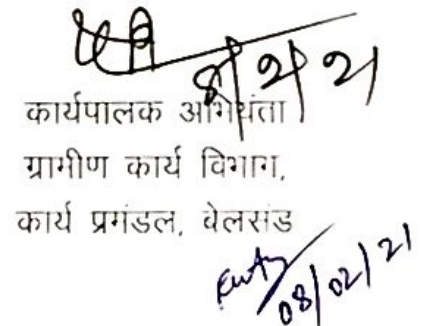 8/2/21
कार्यपालक अभियंता
ग्रामीण कार्य विभाग,
कार्य प्रमंडल, बेलसंड
08/02/21